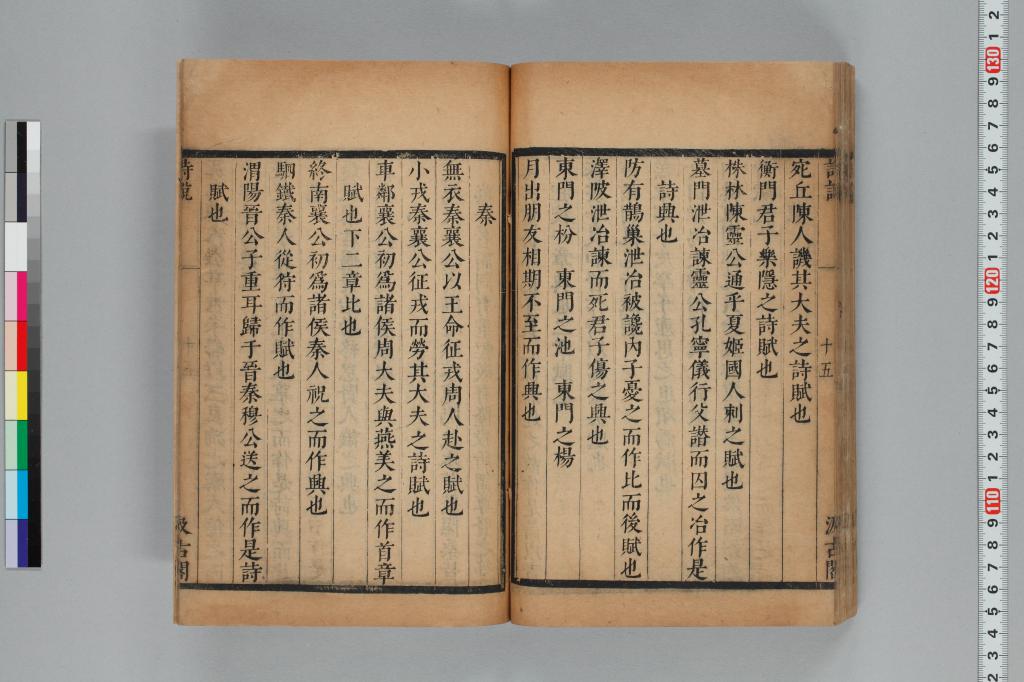 詩説
十五
汲古閣
宛丘陳人譏其大夫之詩賦也
衡門君子樂隱之詩賦也
株林陳靈公通乎夏姬國人刺之賦也
墓門泄冶諫靈公孔寧儀行父譖而囚之冶作是
詩興也
防有鵲巢泄冶被讒內子憂之而作比而後賦也
澤陂泄冶諫而死君子傷之興也
東門之枌 東門之池 東門之楊
月出朋友相期不至而作興也
秦
無衣秦襄公以王命征戎周人赴之賦也
小戎秦襄公征戎而勞其大夫之詩賦也
車鄰襄公初爲諸侯周大夫與燕美之而作首章
賦也下二章比也
終南襄公初爲諸侯秦人祝之而作興也
駉鐵秦人從狩而作賦也
渭陽晉公子重耳歸于晉秦穆公送之而作是詩
賦也
詩說
汲古閣
13
12
11